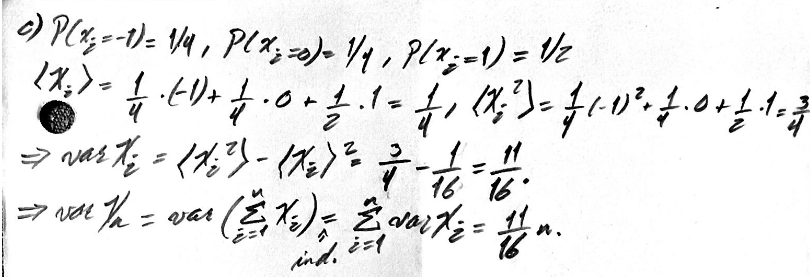 c) P(x_i=-1)=1/4, P(x_i=0)=1/4, P(x_i=1)=1/2
⟨X_i⟩ = 1/4·(-1)+1/4·0+1/2·1 = 1/4, ⟨X_i²⟩ = 1/4(-1)²+1/4·0+1/2·1 = 3/4
⇒ var X_i = ⟨X_i²⟩-⟨X_i⟩² = 3/4 - 1/16 = 11/16.
⇒ var Y_n = var (∑_{i=1}^n X_i) = ∑_{i=1}^n var X_i = 11/16 n.
↑
ind.